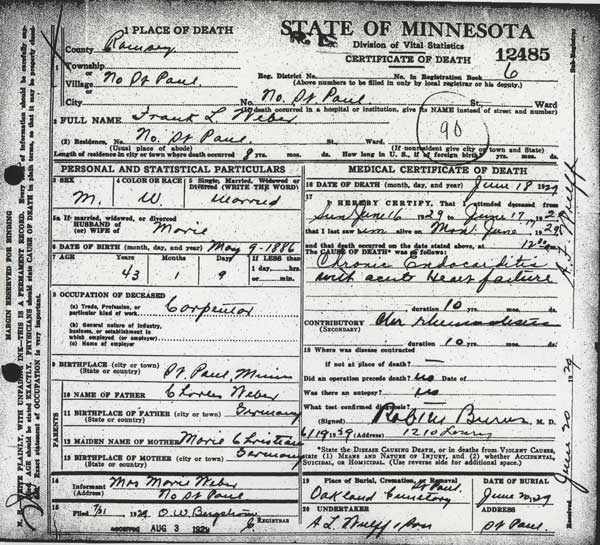 1 PLACE OF DEATH
STATE OF MINNESOTA
Division of Vital Statistics
CERTIFICATE OF DEATH
12485
County Ramsey
Township
or
Village No St Paul
or
City
Reg. District No. No. in Registration Book 6
(Above numbers to be filled in only by local registrar or his deputy.)
No. No. St. Paul St., Ward
(If death occurred in a hospital or institution, give its NAME instead of street and number)
2 FULL NAME Frank L Weber
90
(2) Residence, No. No. St Paul St., Ward.
(Usual place of abode) (If nonresident give city or town and State)
Length of residence in city or town where death occurred 8 yrs. mos. ds. How long in U. S., if of foreign birth? yrs. mos. ds.
PERSONAL AND STATISTICAL PARTICULARS
3 SEX
M.
4 COLOR OR RACE
W.
5 Single, Married, Widowed or Divorced (WRITE THE WORD)
Married
5a If married, widowed, or divorced
HUSBAND of
(or) WIFE of Marie
6 DATE OF BIRTH (month, day, and year) May 9-1886
7 AGE Years Months Days If LESS than
43 1 9
1 day, hrs.
or min.
8 OCCUPATION OF DECEASED
(a) Trade, Profession, or
particular kind of work Carpenter
(b) General nature of industry,
business, or establishment in
which employed (or employer)
(c) Name of employer
9 BIRTHPLACE (city or town) St Paul, Minn
(State or country)
PARENTS
10 NAME OF FATHER Charles Weber
11 BIRTHPLACE OF FATHER (city or town) Germany
(State or country)
12 MAIDEN NAME OF MOTHER Marie Christian
13 BIRTHPLACE OF MOTHER (city or town) Germany
(State or country)
14
Informant Mrs Marie Weber
(Address) No St Paul
15
Filed 7/31 1929 O.W. Bergstrom
REGISTRAR
received AUG 3 1929
MEDICAL CERTIFICATE OF DEATH
16 DATE OF DEATH (month, day, and year) June 18 1929
17
I HEREBY CERTIFY, That I attended deceased from
Sun June 16 1929 to June 17, 1929
that I last saw him alive on Mon June 17, 1929
and that death occurred on the date stated above, at 12 30
The CAUSE OF DEATH* was as follows:
Chronic Endocarditis
with acute Heart failure
duration 10 yrs. mos. ds.
CONTRIBUTORY Chr Rheumatism
(SECONDARY)
duration 10 yrs. mos. ds.
18 Where was disease contracted
if not at place of death?
Did an operation precede death? no Date of
Was there an autopsy? no
What test confirmed diagnosis?
(Signed) Rob. M Burns M. D.
6/19 1929 (Address) 1210 Lowry
*State the DISEASE CAUSING DEATH, or in deaths from VIOLENT CAUSES, state (1) MEANS AND NATURE OF INJURY, and (2) whether ACCIDENTAL, SUICIDAL, or HOMICIDAL. (Use reverse side for additional space.)
19 Place of Burial, Cremation, or Removal
St Paul
Oakland Cemetery
DATE OF BURIAL
June 20, 29
20 UNDERTAKER
A L Wulff & Son
ADDRESS
St Paul
MARGIN RESERVED FOR BINDING
June 20 1929